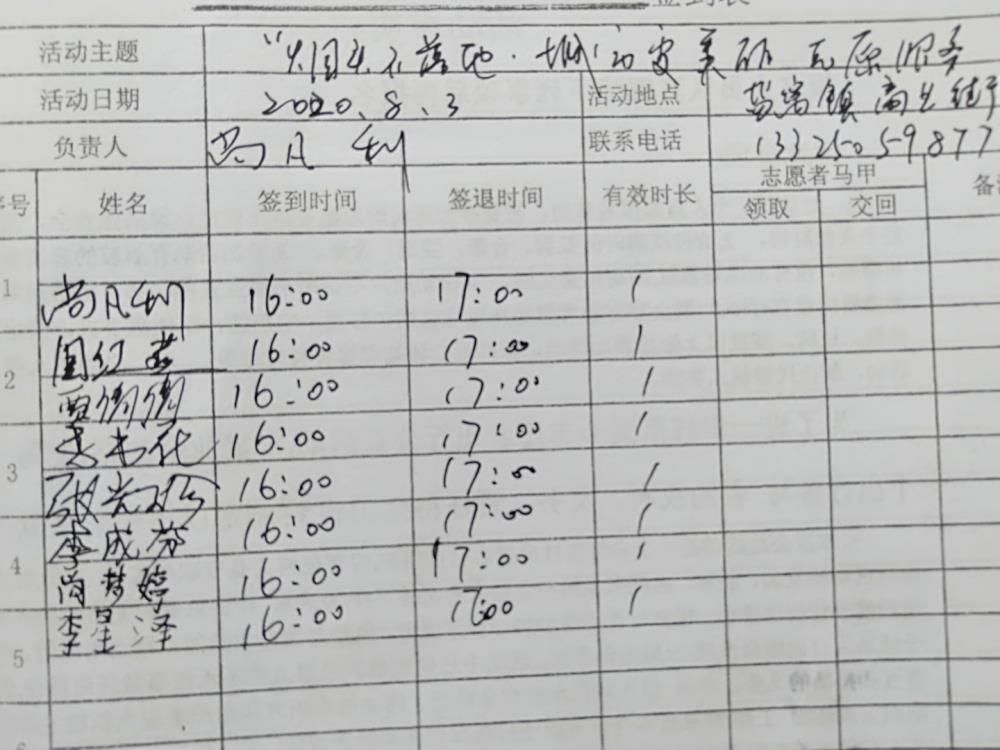 签到表
活动主题 "烟头不落地·城市更美丽"志愿服务
活动日期 2020.8.3 活动地点 镇商业街
负责人 尚凡利 联系电话 13325059877
序号 姓名 签到时间 签退时间 有效时长 志愿者马甲 备注
领取 交回
1 尚凡利 16:00 17:00 1
红 16:00 17:00 1
2 贾倩倩 16:00 17:00 1
16:00 17:00 1
3 张 16:00 17:00 1
李成芬 16:00 17:00 1
4 尚梦婷 16:00 17:00 1
李星泽 16:00 17:00 1
5
6